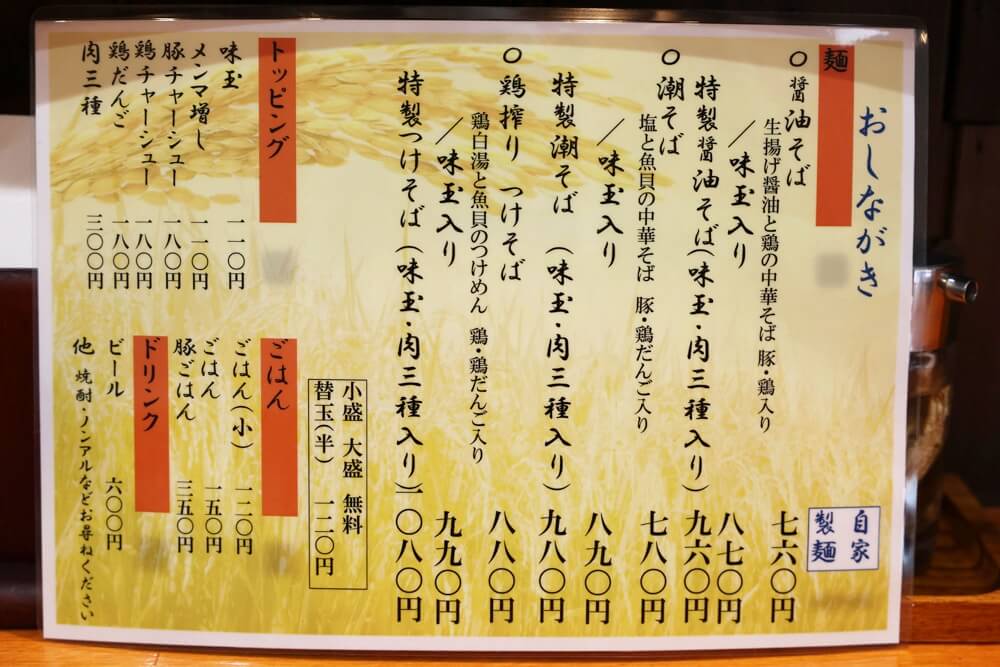 おしながき
自家
製麺
麺
○醤油そば 七六〇円
生揚げ醤油と鶏の中華そば 豚・鶏入り
／味玉入り 八七〇円
特製醤油そば(味玉・肉三種入り) 九六〇円
○潮そば 七八〇円
塩と魚貝の中華そば 豚・鶏だんご入り
／味玉入り 八九〇円
特製潮そば (味玉・肉三種入り) 九八〇円
○鶏搾り つけそば 八八〇円
鶏白湯と魚貝のつけめん 鶏・鶏だんご入り
／味玉入り 九九〇円
特製つけそば (味玉・肉三種入り) 一〇八〇円
小盛 大盛 無料
替玉(半) 一二〇円
トッピング
味玉 一一〇円
メンマ増し 一一〇円
豚チャーシュー 一八〇円
鶏チャーシュー 一八〇円
鶏だんご 一八〇円
肉三種 三〇〇円
ごはん
ごはん(小) 一二〇円
ごはん 一五〇円
豚ごはん 三五〇円
ドリンク
ビール 六〇〇円
他 焼酎・ノンアルなどお尋ねください